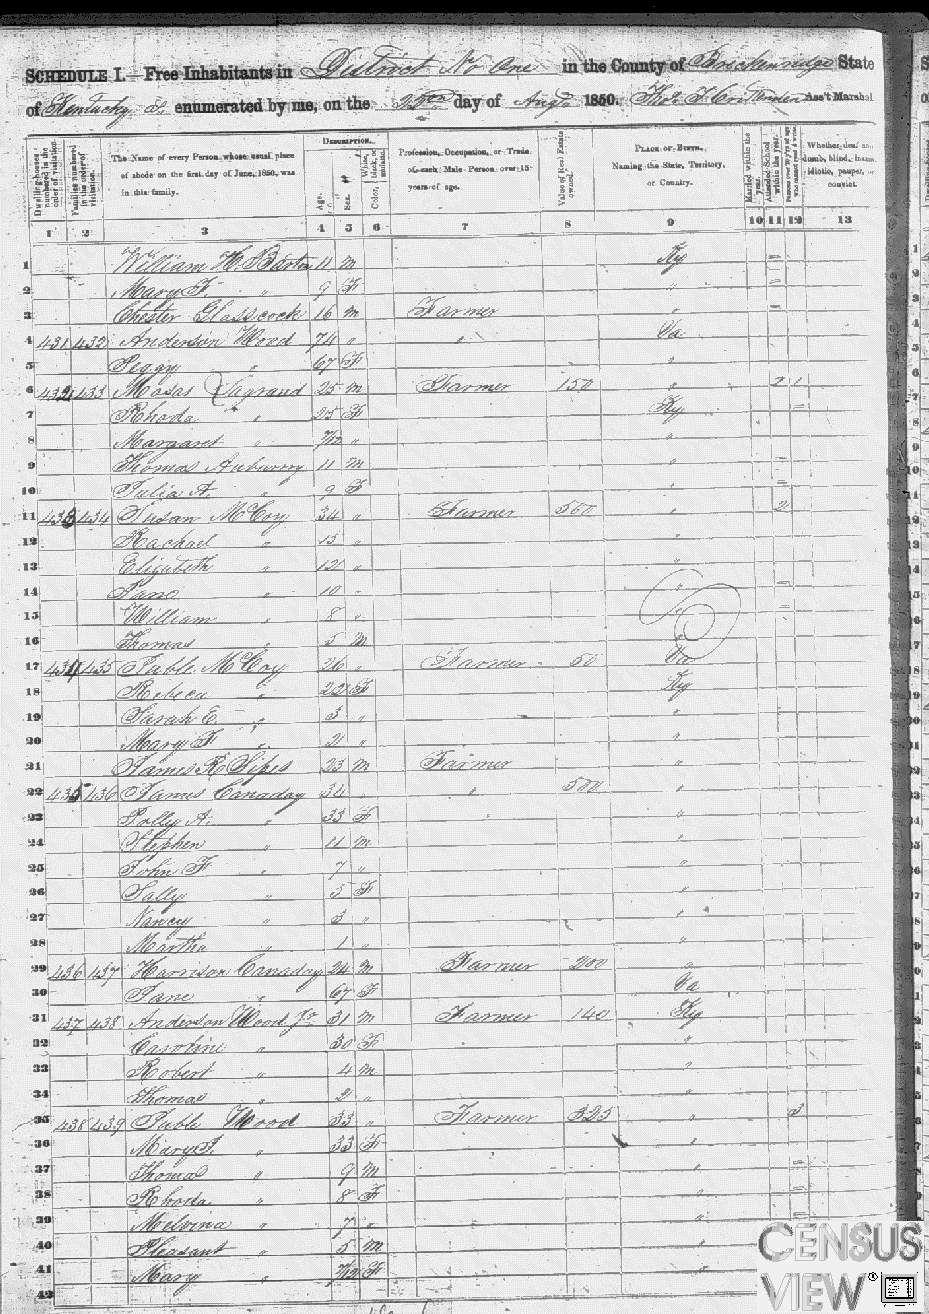 SCHEDULE I.—Free Inhabitants in District No One in the County of Breckenridge State
of Kentucky enumerated by me, on the 22nd day of Augt 1850. Thos J. Crittenden Ass't Marshal
Dwelling-houses numbered in the order of visitation.
Families numbered in the order of visitation.
The Name of every Person whose usual place of abode on the first day of June, 1850, was in this family.
DESCRIPTION.
Age.
Sex.
Color, White, black, or mulatto.
Profession, Occupation, or Trade of each Male Person over 15 years of age.
Value of Real Estate owned.
PLACE OF BIRTH.
Naming the State, Territory, or Country.
Married within the year.
Attended School within the year.
Persons over 20 y'rs of age who cannot read & write.
Whether deaf and dumb, blind, insane, idiotic, pauper, or convict.
1 2 3 4 5 6 7 8 9 10 11 12 13
1 William H. Barton 11 m Ky =
2 Mary F. " 9 F " =
3 Chester Glasscock 16 m Farmer " =
4 431 432 Anderson Wood 74 " " Va
5 Peggy " 67 F "
6 432 433 Moses 25 m Farmer 150 " 2 1
7 Rhoda " 25 F Ky =
8 Margaret " 7/12 " "
9 Thomas 11 m " =
10 Julia A. " 9 F " =
11 433 434 Susan McCoy 34 " Farmer 500 " 2
12 Rachael " 13 " "
13 Elizabeth " 12 " "
14 Jane " 10 " " =
15 William " 8 " " =
16 Thomas " 5 m "
17 434 435 McCoy 26 " Farmer 50 Va
18 Rebeca " 22 F Ky
19 Sarah E. " 3 " "
20 Mary F. " 2 " "
21 James R. Sipes 23 m Farmer "
22 435 436 James Canaday 34 " " 500 "
23 Polly A. " 33 F "
24 Stephen " 11 m "
25 John F. " 7 " "
26 Sally " 5 F "
27 Nancy " 3 " "
28 Martha " 1 " "
29 436 437 Harrison Canaday 24 m Farmer 200 "
30 Jane " 67 F Va
31 437 438 Anderson Wood Jr 31 m Farmer 140 Ky
32 Caroline " 30 F "
33 Robert " 4 m "
34 Thomas " 2 " "
35 438 439 Wood 33 " Farmer 325 " 3
36 Mary J. " 33 F
37 Thomas " 9 m " =
38 Rhoda " 8 F " =
39 Melvina " 7 " " =
40 Pleasant " 5 m
41 Mary " 7/12 F
42
CENSUS
VIEW®